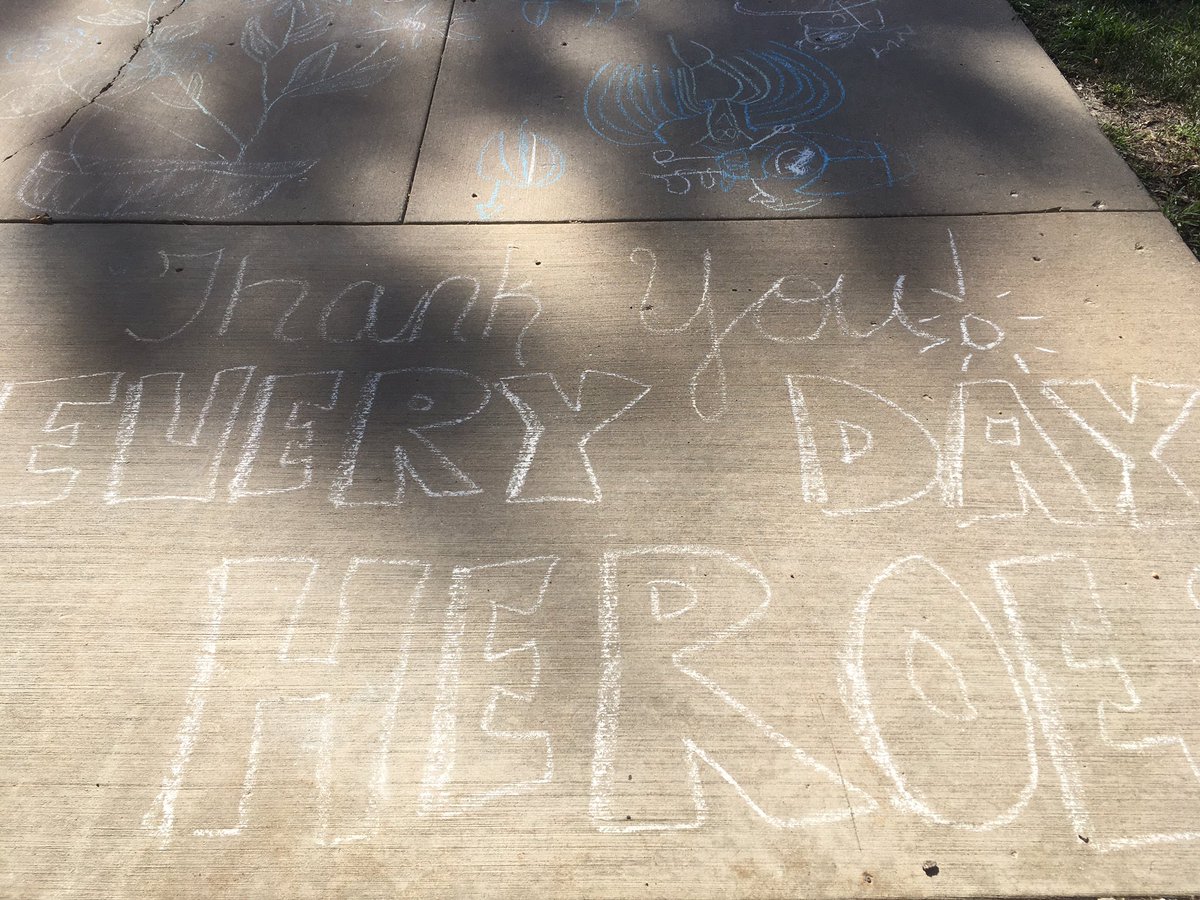 Thank You!
EVERY DAY
HEROES